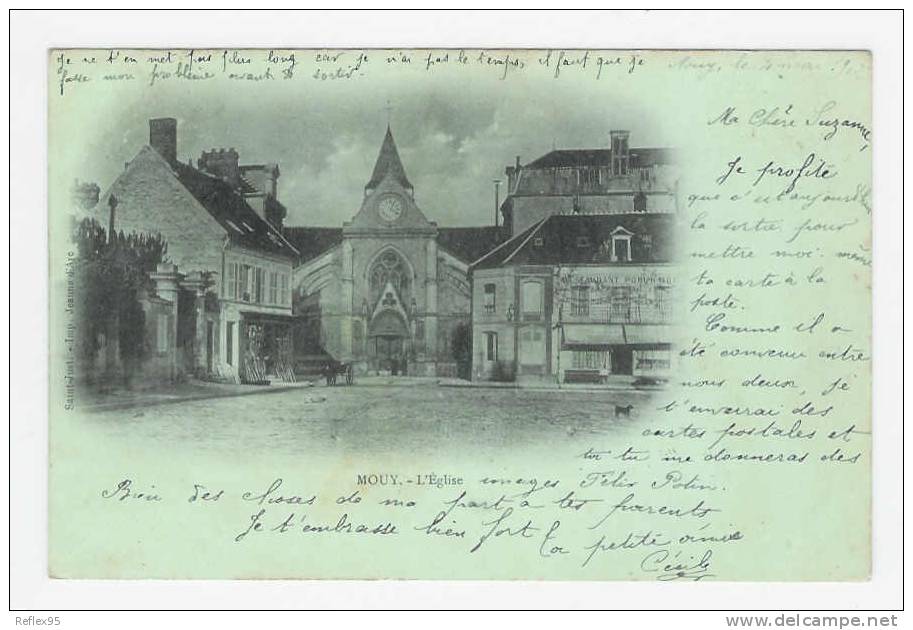 Je ne t'en met pas plus long car je n'ai pas le temps, il faut que je
fasse mon problème avant de sortir.
Mouy, le
Ma Chère Suzanne,
Je profite
que c'est aujourd'hui
la sortie pour
mettre moi même
ta carte à la
poste.
Comme il a
été convenu entre
nous deux, je
t'enverrai des
cartes postales et
toi tu me donneras des
images Félix Potin.
Bien des choses de ma part à tes parents
Je t'embrasse bien fort
ta petite amie
Cécile
MOUY. - L'Église
Saint-Just. - Imp. Jeanne d'Arc
RESTAURANT
Reflex95
www.delcampe.net